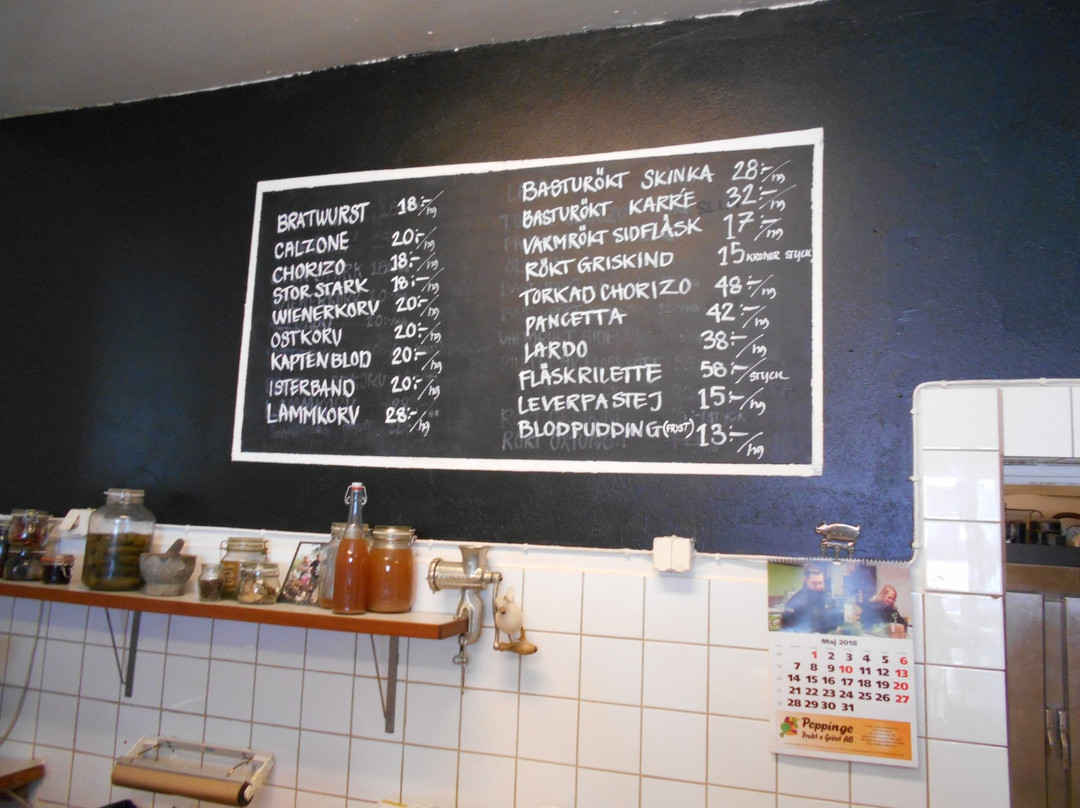 BRATWURST 18:-/hg
CALZONE 20:-/hg
CHORIZO 18:-/hg
STOR STARK 18:-/hg
WIENERKORV 20:-/hg
OSTKORV 20:-/hg
KAPTEN BLOD 20:-/hg
ISTERBAND 20:-/hg
LAMMKORV 28:-/hg
BASTURÖKT SKINKA 28:-/hg
BASTURÖKT KARRÉ 32:-/hg
VARMRÖKT SIDFLÄSK 17:-/hg
RÖKT GRISKIND 15 KRONOR STYCK
TORKAD CHORIZO 48:-/hg
PANCETTA 42:-/hg
LARDO 38:-/hg
FLÄSKRILETTE 58:-/STYCK
LEVERPASTEJ 15:-/hg
BLODPUDDING (FRYST) 13:-/hg
Maj 2018
1 2 3 4 5 6
7 8 9 10 11 12 13
14 15 16 17 18 19 20
21 22 23 24 25 26 27
28 29 30 31
Peppinge
Frukt & Grönt AB